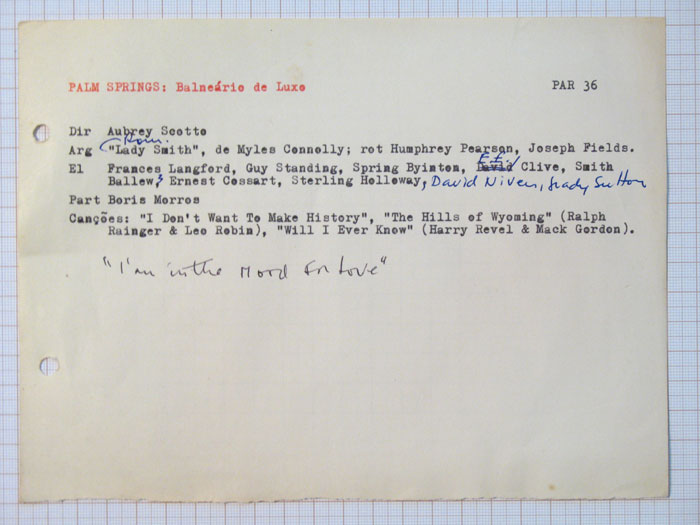 PALM SPRINGS: Balneário de Luxo PAR 36
Dir Aubrey Scotto
Rom.
Arg "Lady Smith", de Myles Connolly; rot Humphrey Pearson, Joseph Fields.
E.E.
El Frances Langford, Guy Standing, Spring Byinton, David Clive, Smith
Ballew, Ernest Cossart, Sterling Holloway, David Niven, Grady Sutton
Part Boris Morros
Canções: "I Don't Want To Make History", "The Hills of Wyoming" (Ralph
Rainger & Leo Robin), "Will I Ever Know" (Harry Revel & Mack Gordon).
"I'm in the Mood for Love"